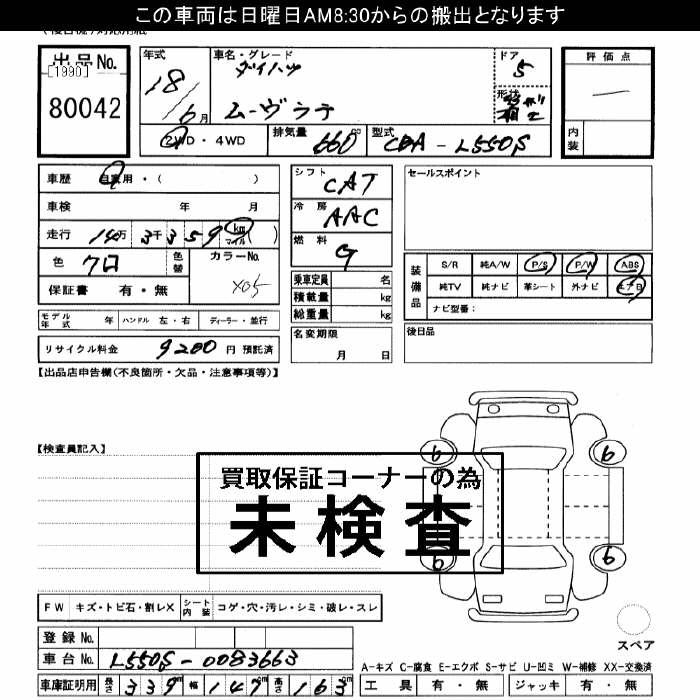 この車両は日曜日AM8:30からの搬出となります
出品No.
[1990]
80042
年式
18/6月
車名・グレード
ダイハツ
ムーヴラテ
ドア
5
形状
評価点
内装
2WD・4WD
排気量
660 cc
型式
CBA - L550S
車歴
自家用・( )
車検 年 月
走行 14万3千359 km マイル ( )
色 クロ
色替
カラーNo.
X05
保証書 有・無
モデル年式 年
ハンドル 左・右
ディーラー・並行
リサイクル料金 9200 円 預託済
シフト
CAT
冷房
AAC
燃料
G
乗車定員 名
積載量 kg
総重量 kg
名変期限
月 日
セールスポイント
装備品
S/R 純A/W P/S P/W ABS
純TV 純ナビ 革シート 外ナビ エアB
ナビ型番:
後日品
【出品店申告欄(不良箇所・欠品・注意事項等)】
【検査員記入】
6 6
6 6
買取保証コーナーの為
未検査
FW キズ・トビ石・割レX
シート内装 コゲ・穴・汚レ・シミ・破レ・スレ
スペア
登録No.
車台No. L550S-0083663
車庫証明用 長さ 339 cm 幅 147 cm 高さ 163 cm
A-キズ C-腐食 E-エクボ S-サビ U-凹ミ W-補修 XX-交換済
工具 有・無
ジャッキ 有・無